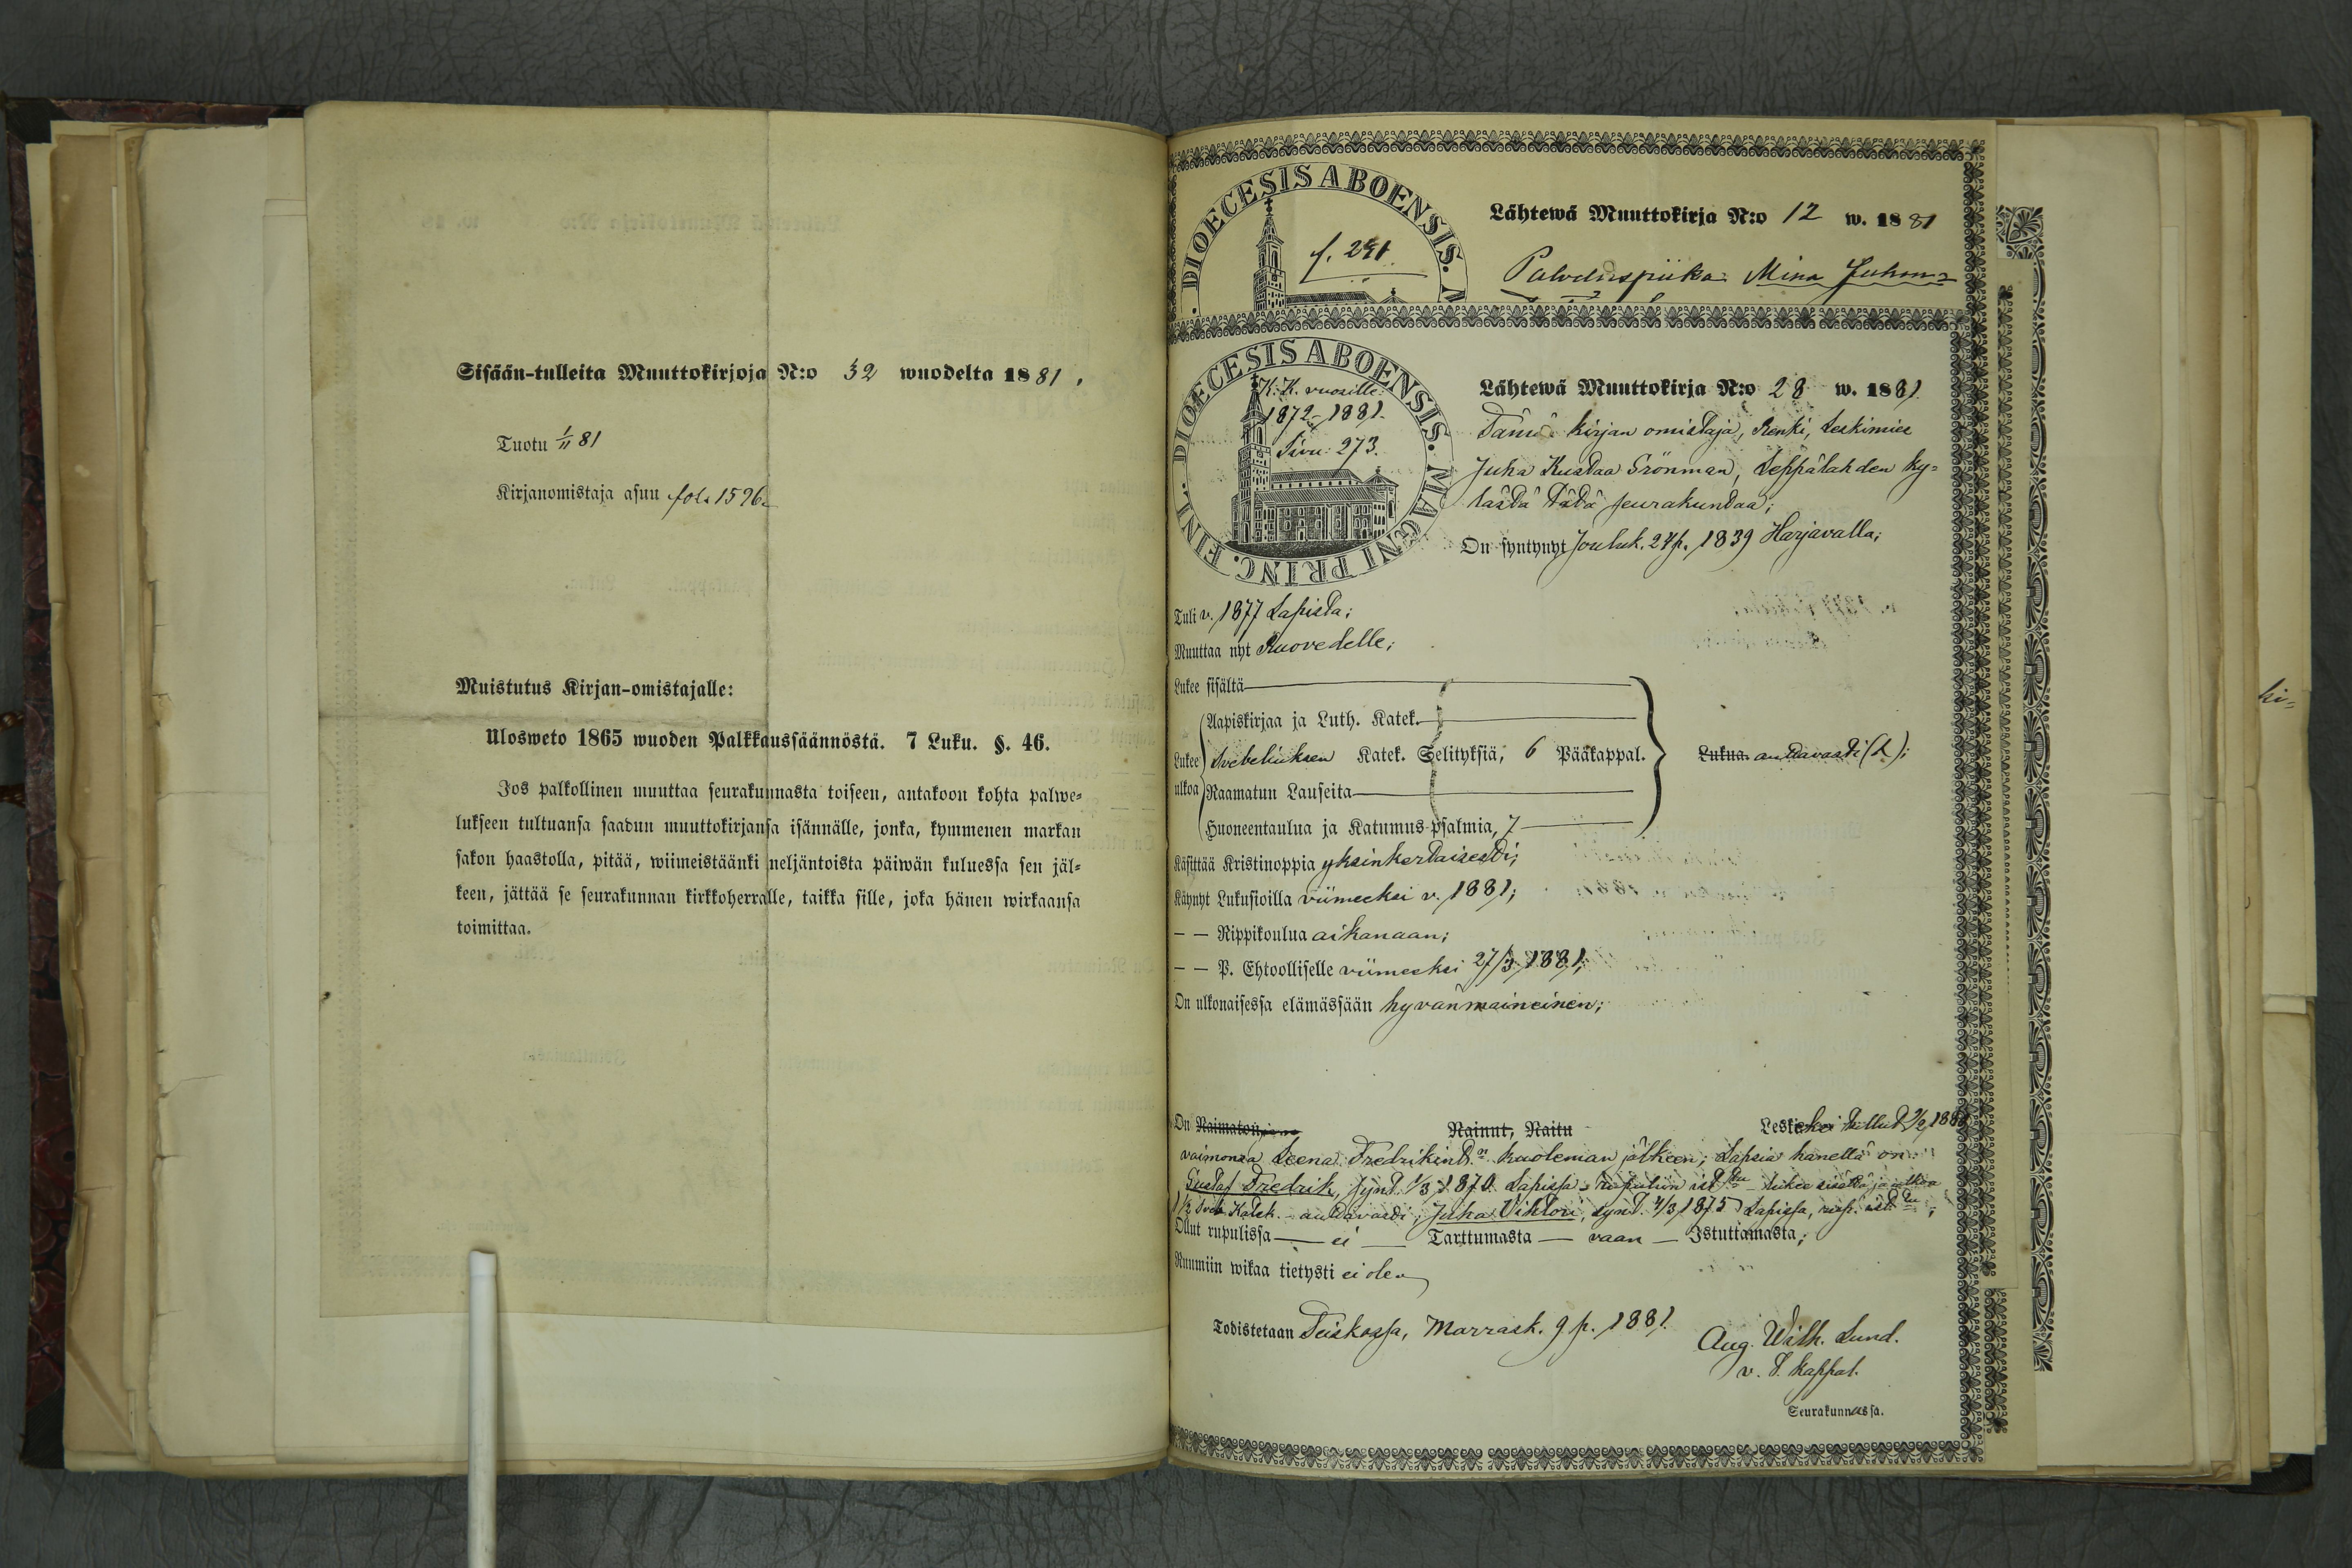 Sisään-tulleita Muuttokirjoja N:o 32 wuodelta 1881.
Tuotu 1/11 81
Kirjanomistaja asuu fol. 1596.
Muistutus Kirjan-omistajalle:
Ulosweto 1865 wuoden Palkkaussäännöstä. 7 Luku. §. 46.
Jos palkollinen muuttaa seurakunnasta toiseen, antakoon kohta palwe-
lukseen tultuansa saadun muuttokirjansa isännälle, jonka, kymmenen markan
sakon haastolla, pitää, wiimeistäänki neljäntoista päiwän kuluessa sen jäl-
keen, jättää se seurakunnan kirkkoherralle, taikka sille, joka hänen wirkaansa
toimittaa.
DIOECESIS ABOENSIS. M
f. 291
Lähtewä Muuttokirja N:o 12 w. 1881
Palveluspiika Mina Juhon-
DIOECESIS ABOENSIS. MAGNI PRINC. FINL.
K.K. vuosille
1872-1881.
Sivu: 273.
Lähtewä Muuttokirja N:o 28 w. 1881
Tämä kirjan omistaja, Renki, Leskimies
Juha Kustaa Grönman, Seppälahden ky-
lästä tästä seurakuntaa;
On syntynyt Jouluk. 27 p. 1839 Harjavalla;
Tuli v. 1877 Lapista;
Muuttaa nyt Ruovedelle;
Lukee sisältä
Aapiskirjaa ja Luth. Katek.
Lukee ulkoa Svebeliuksen Katek. Selityksiä, 6 Pääkappal. Lukua. auttavasti (2);
Raamatun Lauseita
Huoneentaulua ja Katumus-psalmia, 7
Käsittää Kristinoppia yksinkertaisesti;
Käynyt Lukusioilla viimeeksi v. 1881;
— — Rippikoulua aikanaan;
— — P. Ehtoolliselle viimeeksi 27/3 1881;
On ulkonaisessa elämässään hyvänmaineinen;
On Naimaton, Nainut, Naitu Leskeksi tullut
vaimonsa Leena Fredrikint:n kuoleman jälkeen; Lapsia hänellä on:
Gustaf Fredrik, synt. 1/3 1870 Lapissa, lukee sisältä ja ulkoa
1/2 Sveb Katek. auttavasti; Juha Viktori, synt. 4/3 1875 Lapissa,
Ollut rupulissa — ei — Tarttumasta — vaan — Istuttamasta;
Ruumiin wikaa tietysti ei ole.
Todistetaan Teiskossa, Marrask. 9 p. 1881.
Aug. Wilh. Lund.
v. t. kappal.
Seurakunnassa.
ki-